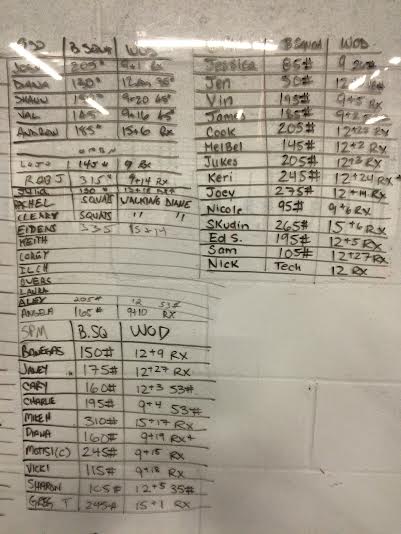 B SQUAT WOD
JOEY 205# 9+1 Rx
DIANA 130# 35#
SHAWN 9+20 65#
VAL 145 9+16 65#
ANDREW 185# 15+6 Rx
145# 9 Rx
ROB J 315# 9+14 Rx
JULIA 130#
RACHEL SQUATS WALKING DIANE
CLENRY SQUATS " "
EIDENS 335 15+14
KEITH
COREY
OVERS
LAURA
ALEX 205# 12 53#
ANGELA 165# 9+10 Rx
5PM B.SQ WOD
BANEGAS 150# 12+9 Rx
JANEY 175# 12+27 Rx
CARY 160# 12+3 53#
CHARLIE 195# 9+4 53#
MIKE H 310# 15+17 Rx
DIANA 160# 9+19 Rx+
MOTTSI(C) 245# 9+15 Rx
VICKI 115# 9+18 Rx
SHARON 105# 12+5 35#
GREG T 245# 15+1 Rx
B SQUAT WOD
Jessica 85# 9
Jen 50# 12
Vin 195# 9+5 Rx
James 185#
Cook 205# 12+23 Rx
MelBel 145# 12+2 Rx
Jukes 205# 12+3 Rx
Keri 245# 12+24 Rx
Joey 275# 12+14 Rx
Nicole 95# 9+6 Rx
SKudin 265# 15+6 Rx
Ed S. 195# 12+5 Rx
Sam 105# 12+27 Rx
Nick Tech 12 Rx